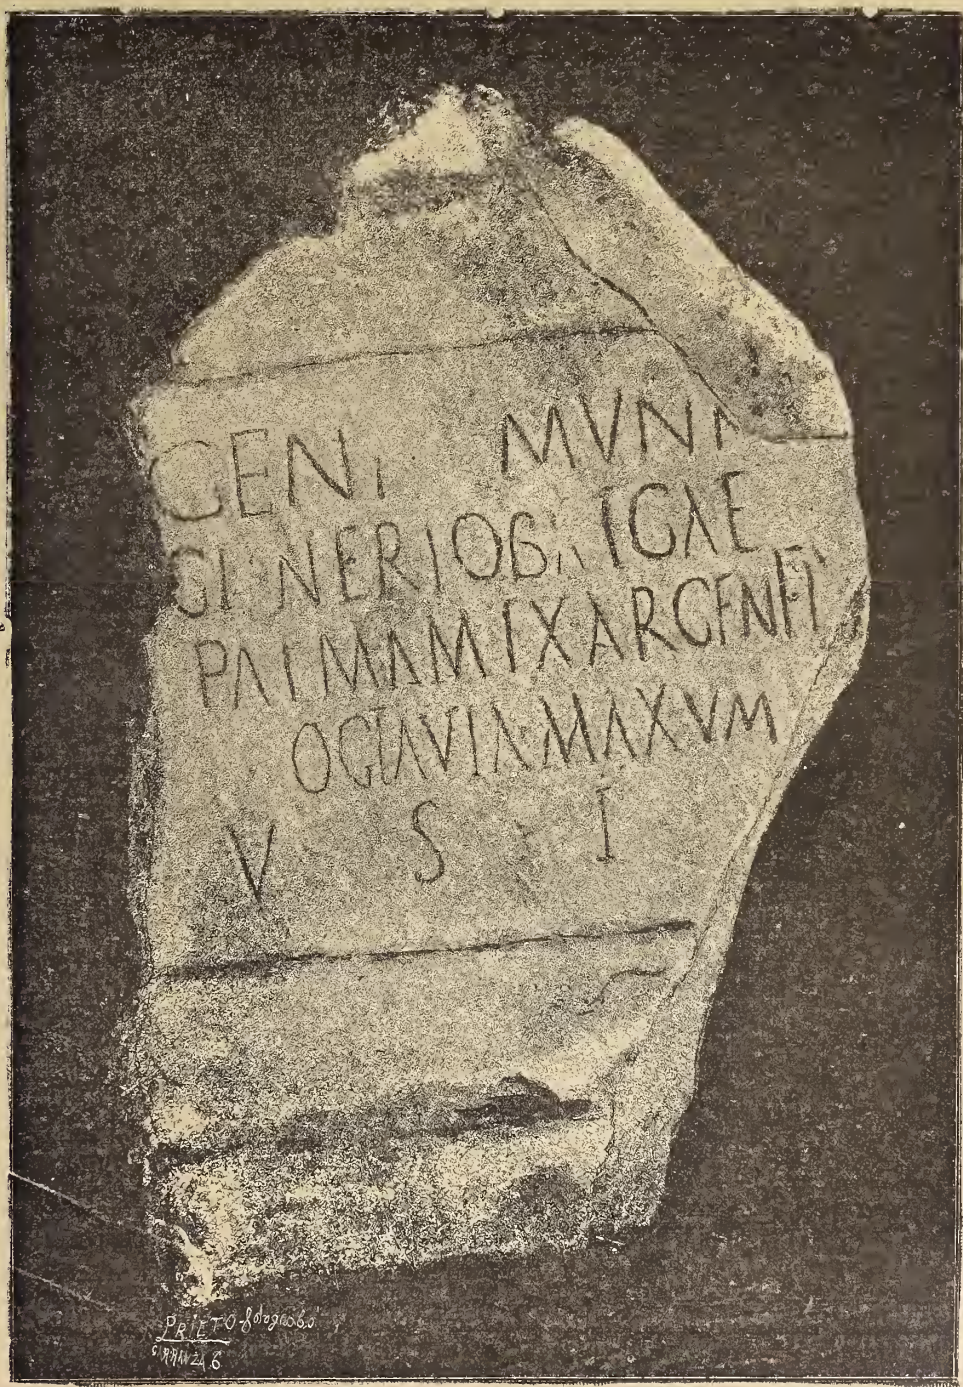 GENI MVNI
PATMAMIXARGENFI
OCTAVIA MAXVM
V S I
PRIETO-fotograbó
CARRANZA 6